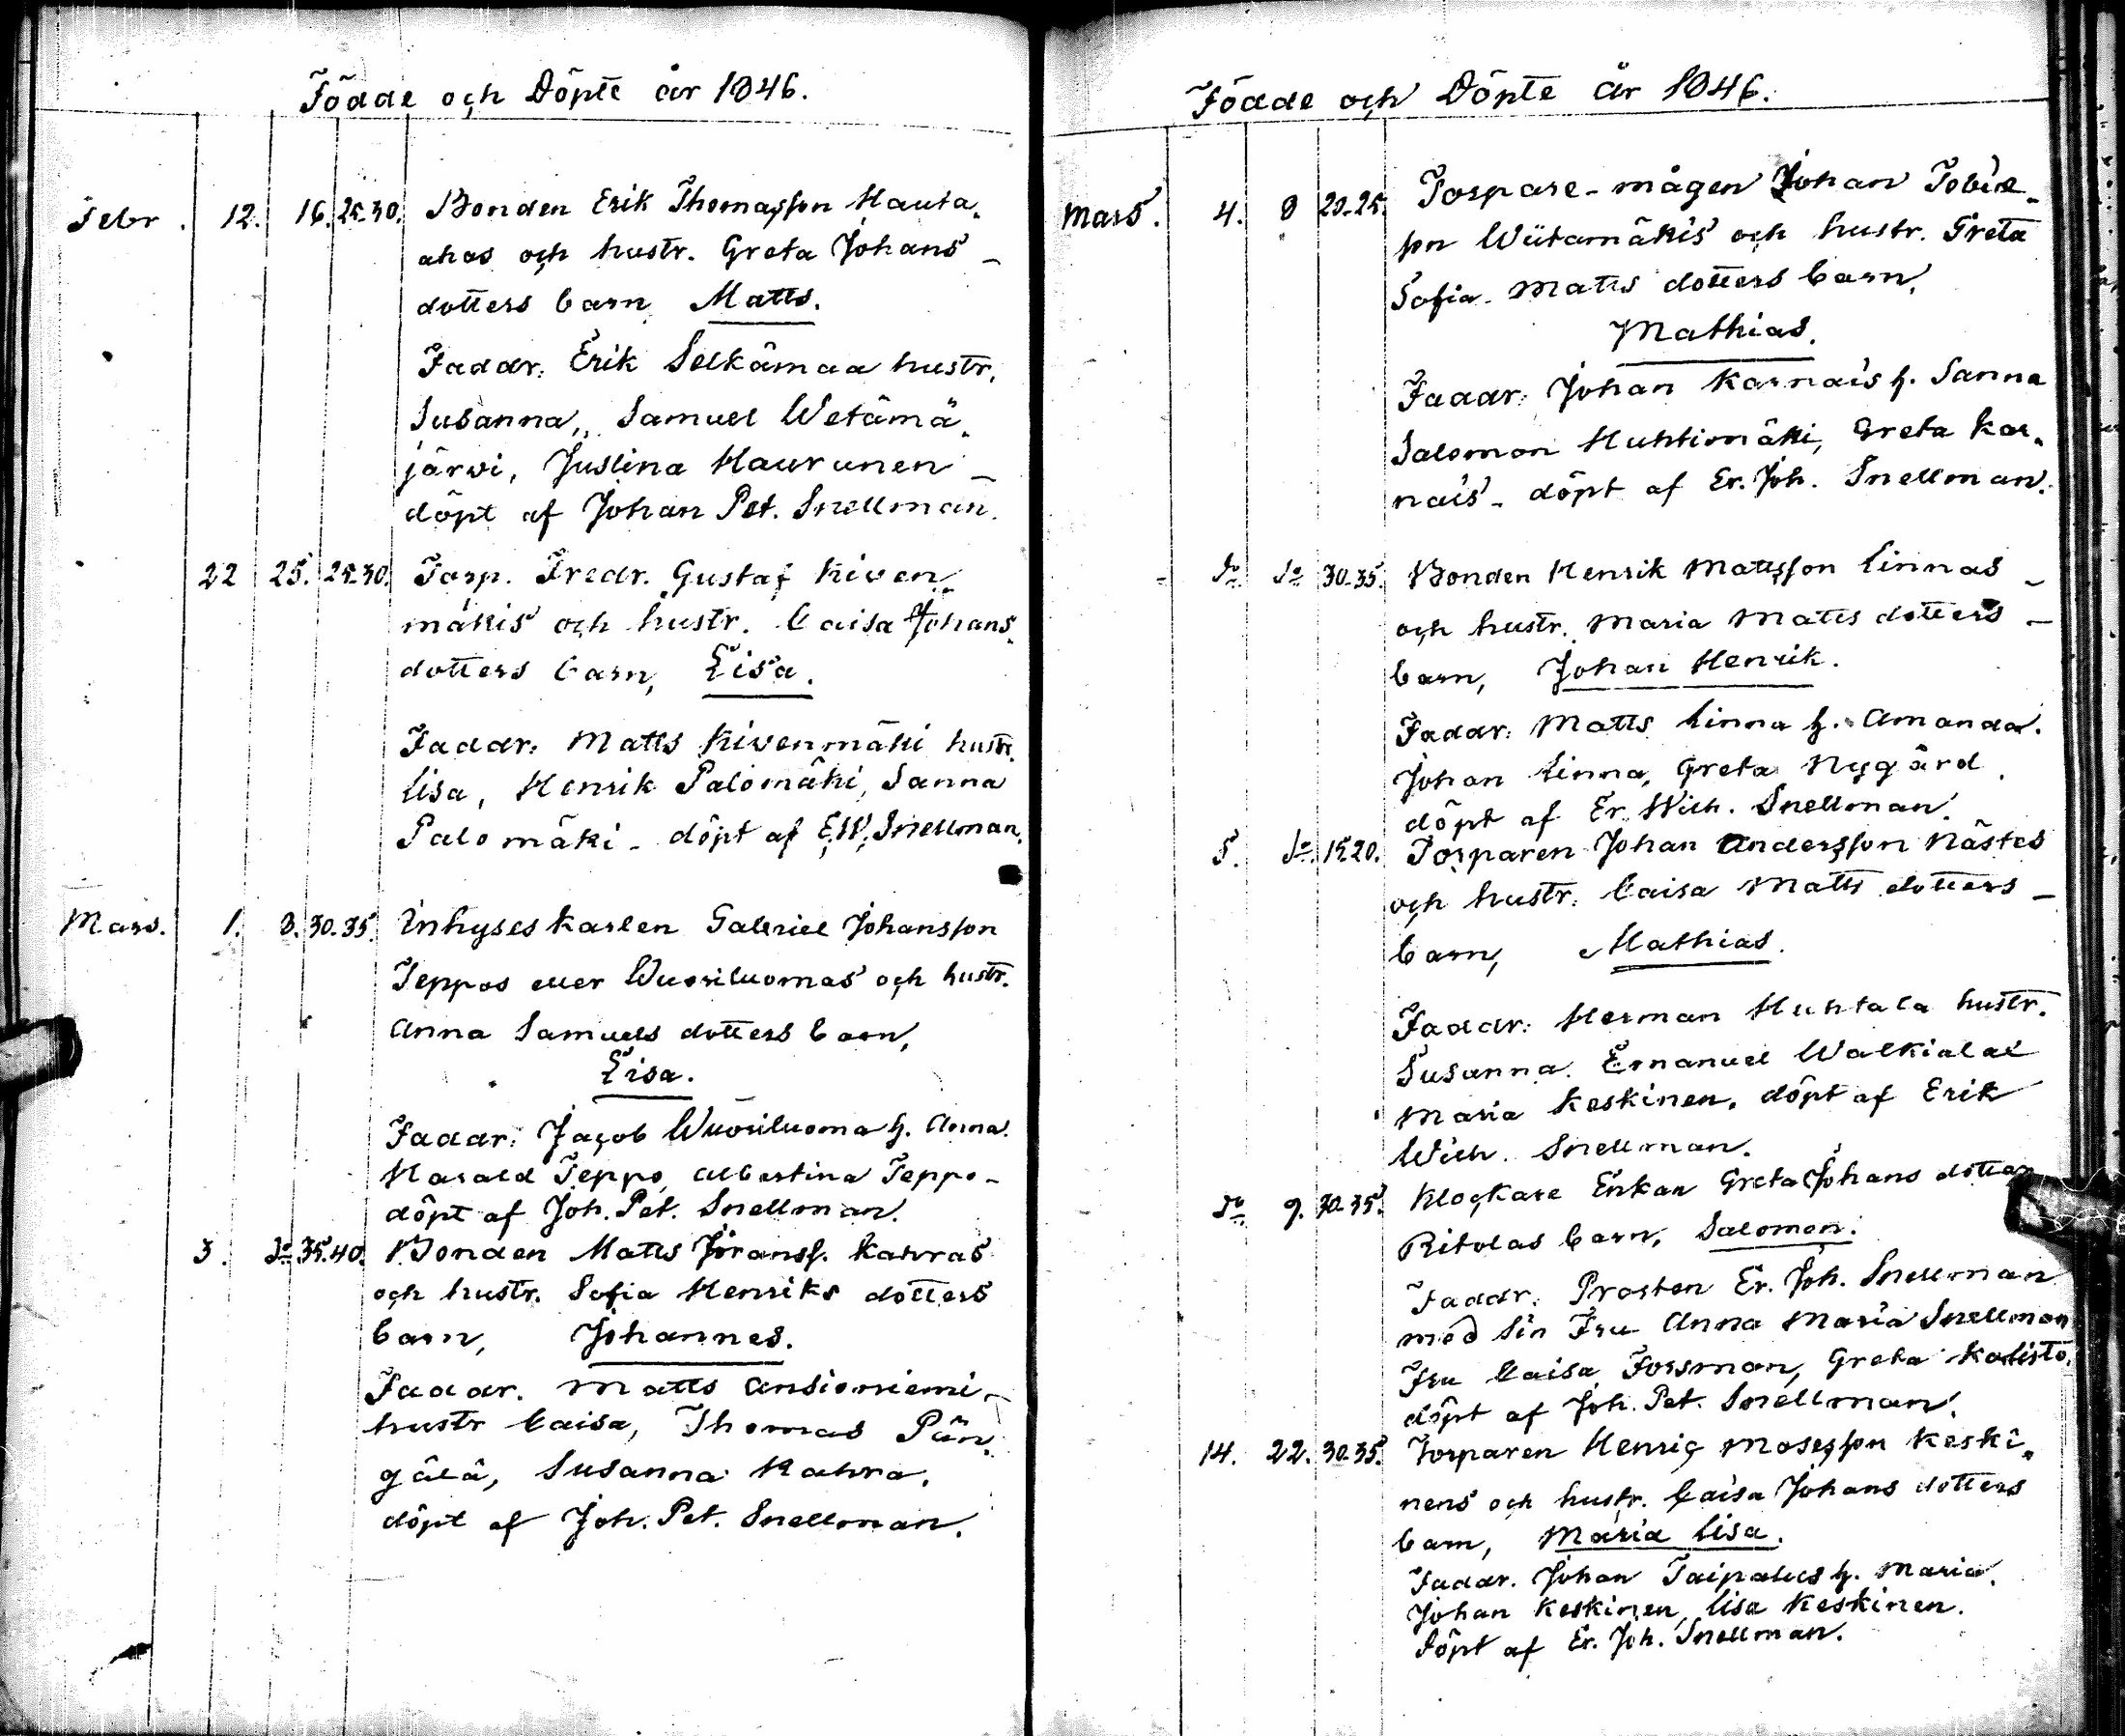 Födde och Döpte år 1846.
Febr. 12. 16. 25.30. Bonden Erik Thomasson Hauta-
ahos och hustr. Greta Johans-
dotters barn, Matts.
Faddr: Erik Selkämaa hustr.
Susanna, Samuel Wetämä-
järvi, Justina Haurunen -
döpt af Johan Pet. Snellman.
22 25. 25.30. Torp. Fredr. Gustaf Kiven-
mäkis och hustr. Caisa Johans-
dotters barn, Lisa.
Faddr: Matts Kivenmäki hustr.
Lisa, Henrik Palomäki, Sanna
Palomäki - döpt af E.W. Snellman.
Mars. 1. 8. 30.35. Inhyseskarlen Gabriel Johansson
Teppos eller Wuoriluomas och hustr.
Anna Samuels dotters barn,
Lisa.
Faddr: Jacob Wuoriluoma h. Anna.
Harald Teppo, Albertina Teppo -
döpt af Joh. Pet. Snellman.
3. do 35.40. Bonden Matts Jöranss. Kahras
och hustr. Sofia Henriks dotters
barn, Johannes.
Faddr. Matts Ansioniemi -
hustr Caisa, Thomas Pän-
gälä, Susanna Kahra.
döpt af Joh. Pet. Snellman.
Födde och Döpte år 1846.
Mars. 4. 8 20-25. Torpare-mågen Johan Tobias-
son Wiitamäkis och hustr. Greta
Sofia Matts dotters barn,
Mathias.
Faddr: Johan Karnais h. Sanna
Salomon Huhtimäki, Greta Kar-
nais - döpt af Er. Joh. Snellman.
do do 30-35. Bonden Henrik Mattsson Linnas -
och hustr. Maria Matts dotters -
barn, Johan Henrik.
Faddr: Matts Linna h. Amanda.
Johan Linna, Greta Nygård.
döpt af Er. Wilh. Snellman.
5. do 15.20. Torparen Johan Andersson Nästes
och hustr. Caisa Matts dotters -
barn, Mathias.
Faddr: Herman Huhtala hustr.
Susanna. Emanuel
Maria Keskinen. döpt af Erik
Wilh. Snellman.
do 9. 30-35. Klockare Enkan Greta Johans dotter
Ritolas barn, Salomon.
Faddr. Prosten Er. Joh. Snellman
med sin Fru Anna Maria Snellman
Fru Caisa Forsman, Greta
döpt af Joh. Pet. Snellman.
14. 22. 30-35. Torparen Henric Mosesson Keski-
nens och hustr. Caisa Johans dotters
barn, Maria Lisa.
Faddr. Johan Taipalus h. Maria.
Johan Keskinen, Lisa Keskinen.
Döpt af Er. Joh. Snellman.